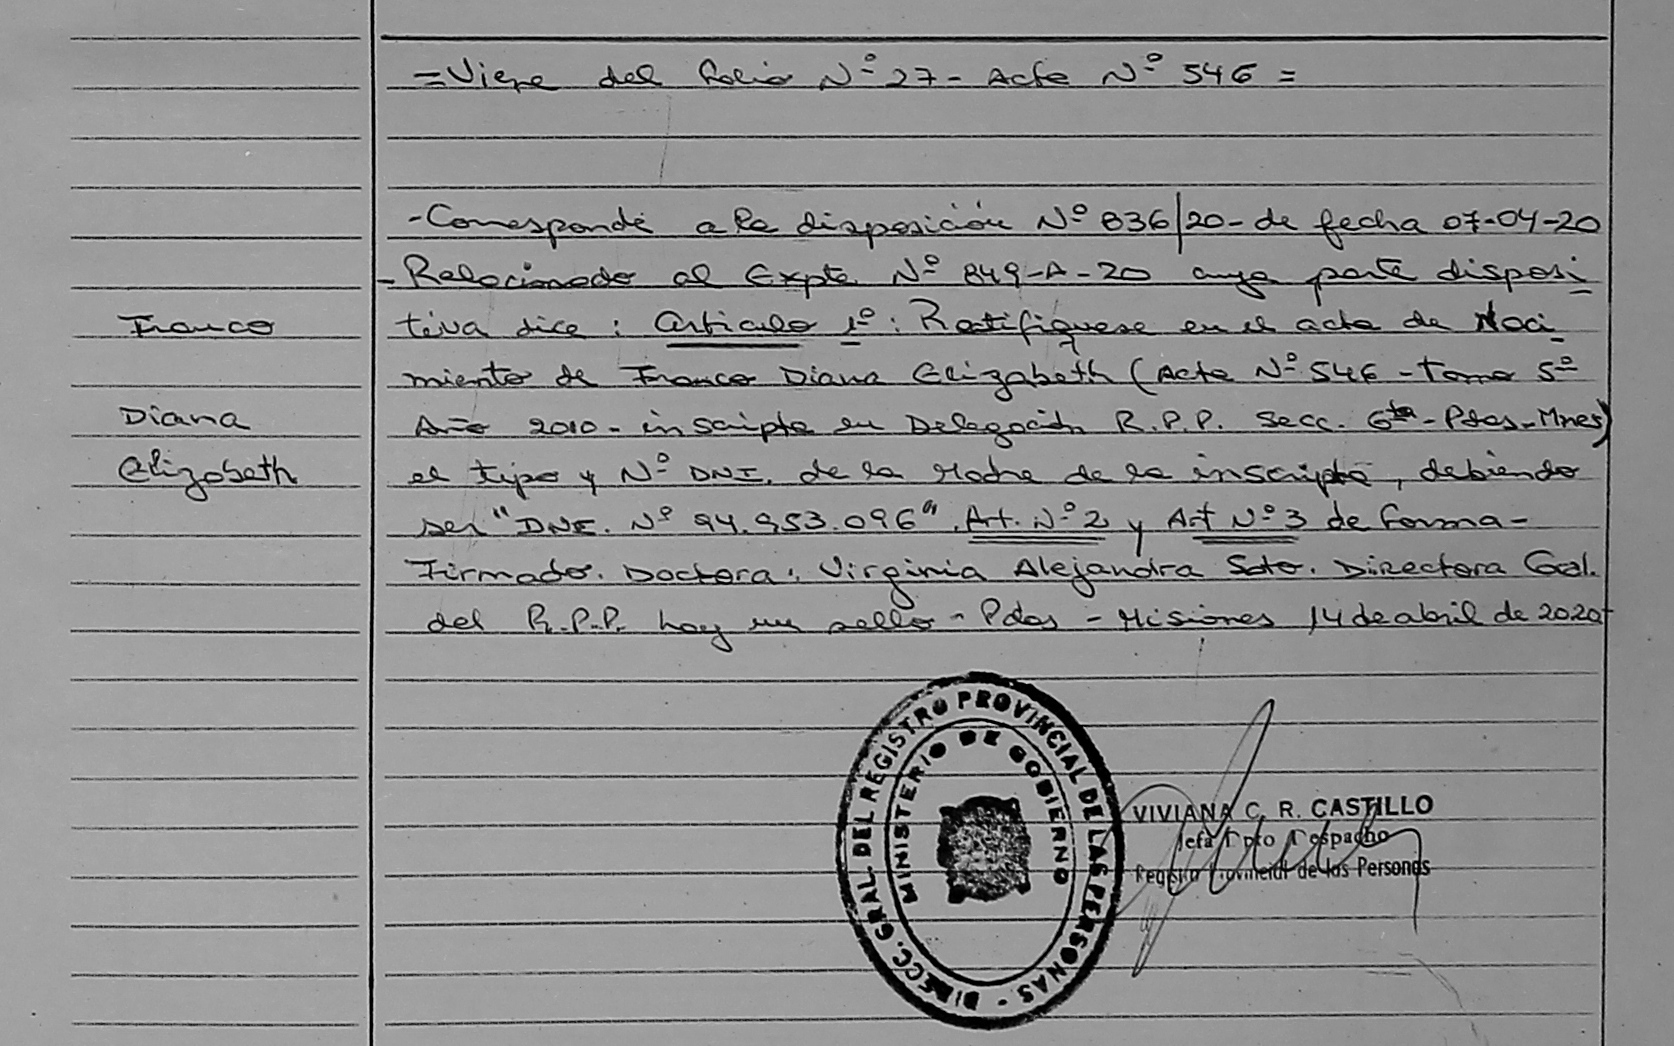 =Viene del folio Nº 27- Acta Nº 546 =
-Corresponde a la disposición Nº 836/20- de fecha 07-04-20
-Relacionado al Expte Nº 849-A-20 cuya parte disposi
Franco
tiva dice: Artículo 1º: Rectifíquese en el acta de Naci
miento de Franco Diana Elizabeth (Acta Nº 546 - Tomo 5º
Diana
Año 2010- inscripta en Delegación R.P.P. Secc. 6ta- Pdas-Mnes)
Elizabeth
el tipo y Nº DNI. de la Madre de la inscripta, debiendo
ser "DNE. Nº 94.953.096". Art. Nº 2 y Art Nº 3 de forma-
Firmado. Doctora: Virginia Alejandra Soto. Directora Gral.
del R.P.P. hay un sello - Pdas - Misiones 14 de abril de 2020
DIRECC. GRAL. DEL REGISTRO PROVINCIAL DE LAS PERSONAS -
MINISTERIO DE GOBIERNO
VIVIANA C. R. CASTILLO
Jefa Dpto Despacho
Registro Provincial de las Personas